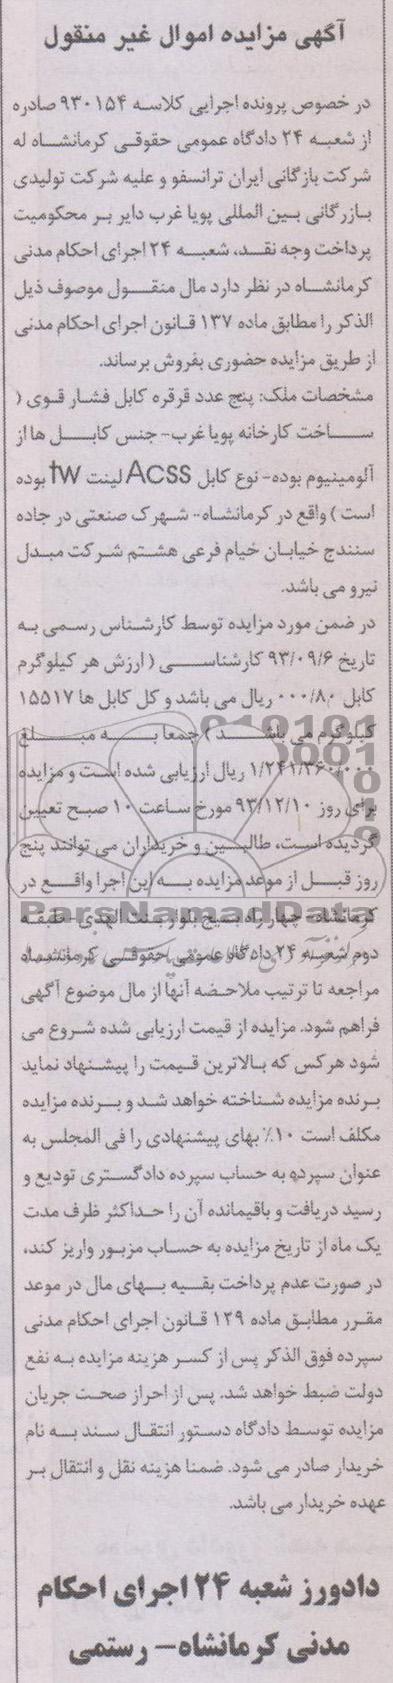 آگهی مزایده اموال غیر منقول
در خصوص پرونده اجرایی کلاسه ۹۳۰۱۵۴ صادره
از شعبه ۲۴ دادگاه عمومی حقوقی کرمانشاه له
شرکت بازرگانی ایران ترانسفو و علیه شرکت تولیدی
بازرگانی بین المللی پویا غرب دایر بر محکومیت
پرداخت وجه نقد، شعبه ۲۴ اجرای احکام مدنی
کرمانشاه در نظر دارد مال منقول موصوف ذیل
الذکر را مطابق ماده ۱۳۷ قانون اجرای احکام مدنی
از طریق مزایده حضوری بفروش برساند.
مشخصات ملک: پنج عدد قرقره کابل فشار قوی (
ساخت کارخانه پویا غرب- جنس کابل ها از
آلومینیوم بوده- نوع کابل Acss لینت tw بوده
است ) واقع در کرمانشاه- شهرک صنعتی در جاده
سنندج خیابان خیام فرعی هشتم شرکت مبدل
نیرو می باشد.
در ضمن مورد مزایده توسط کارشناس رسمی به
تاریخ ۹۳/۰۹/۶ کارشناسی ( ارزش هر کیلوگرم
کابل ۰۰۰/۸۰ ریال می باشد و کل کابل ها ۱۵۵۱۷
کیلوگرم می باشد ) جمعا به مبلغ
۱/۲۴۱/۳۶۰/۰۰۰ ریال ارزیابی شده است و مزایده
برای روز ۹۳/۱۲/۱۰ مورخ ساعت ۱۰ صبح تعیین
گردیده است، طالبین و خریداران می توانند پنج
روز قبل از موعد مزایده به این اجرا واقع در
کرمانشاه- چهارراه بسیج بلوار بنت الهدی- طبقه
دوم شعبه ۲۴ دادگاه عمومی حقوقی کرمانشاه
مراجعه تا ترتیب ملاحضه آنها از مال موضوع آگهی
فراهم شود. مزایده از قیمت ارزیابی شده شروع می
شود هرکس که بالاترین قیمت را پیشنهاد نماید
برنده مزایده شناخته خواهد شد و برنده مزایده
مکلف است ۱۰٪ بهای پیشنهادی را فی المجلس به
عنوان سپرده به حساب سپرده دادگستری تودیع و
رسید دریافت و باقیمانده آن را حداکثر ظرف مدت
یک ماه از تاریخ مزایده به حساب مزبور واریز کند،
در صورت عدم پرداخت بقیه بهای مال در موعد
مقرر مطابق ماده ۱۲۹ قانون اجرای احکام مدنی
سپرده فوق الذکر پس از کسر هزینه مزایده به نفع
دولت ضبط خواهد شد. پس از احراز صحت جریان
مزایده توسط دادگاه دستور انتقال سند به نام
خریدار صادر می شود. ضمنا هزینه نقل و انتقال بر
عهده خریدار می باشد.
دادورز شعبه ۲۴ اجرای احکام
مدنی کرمانشاه- رستمی
ParsNamadData